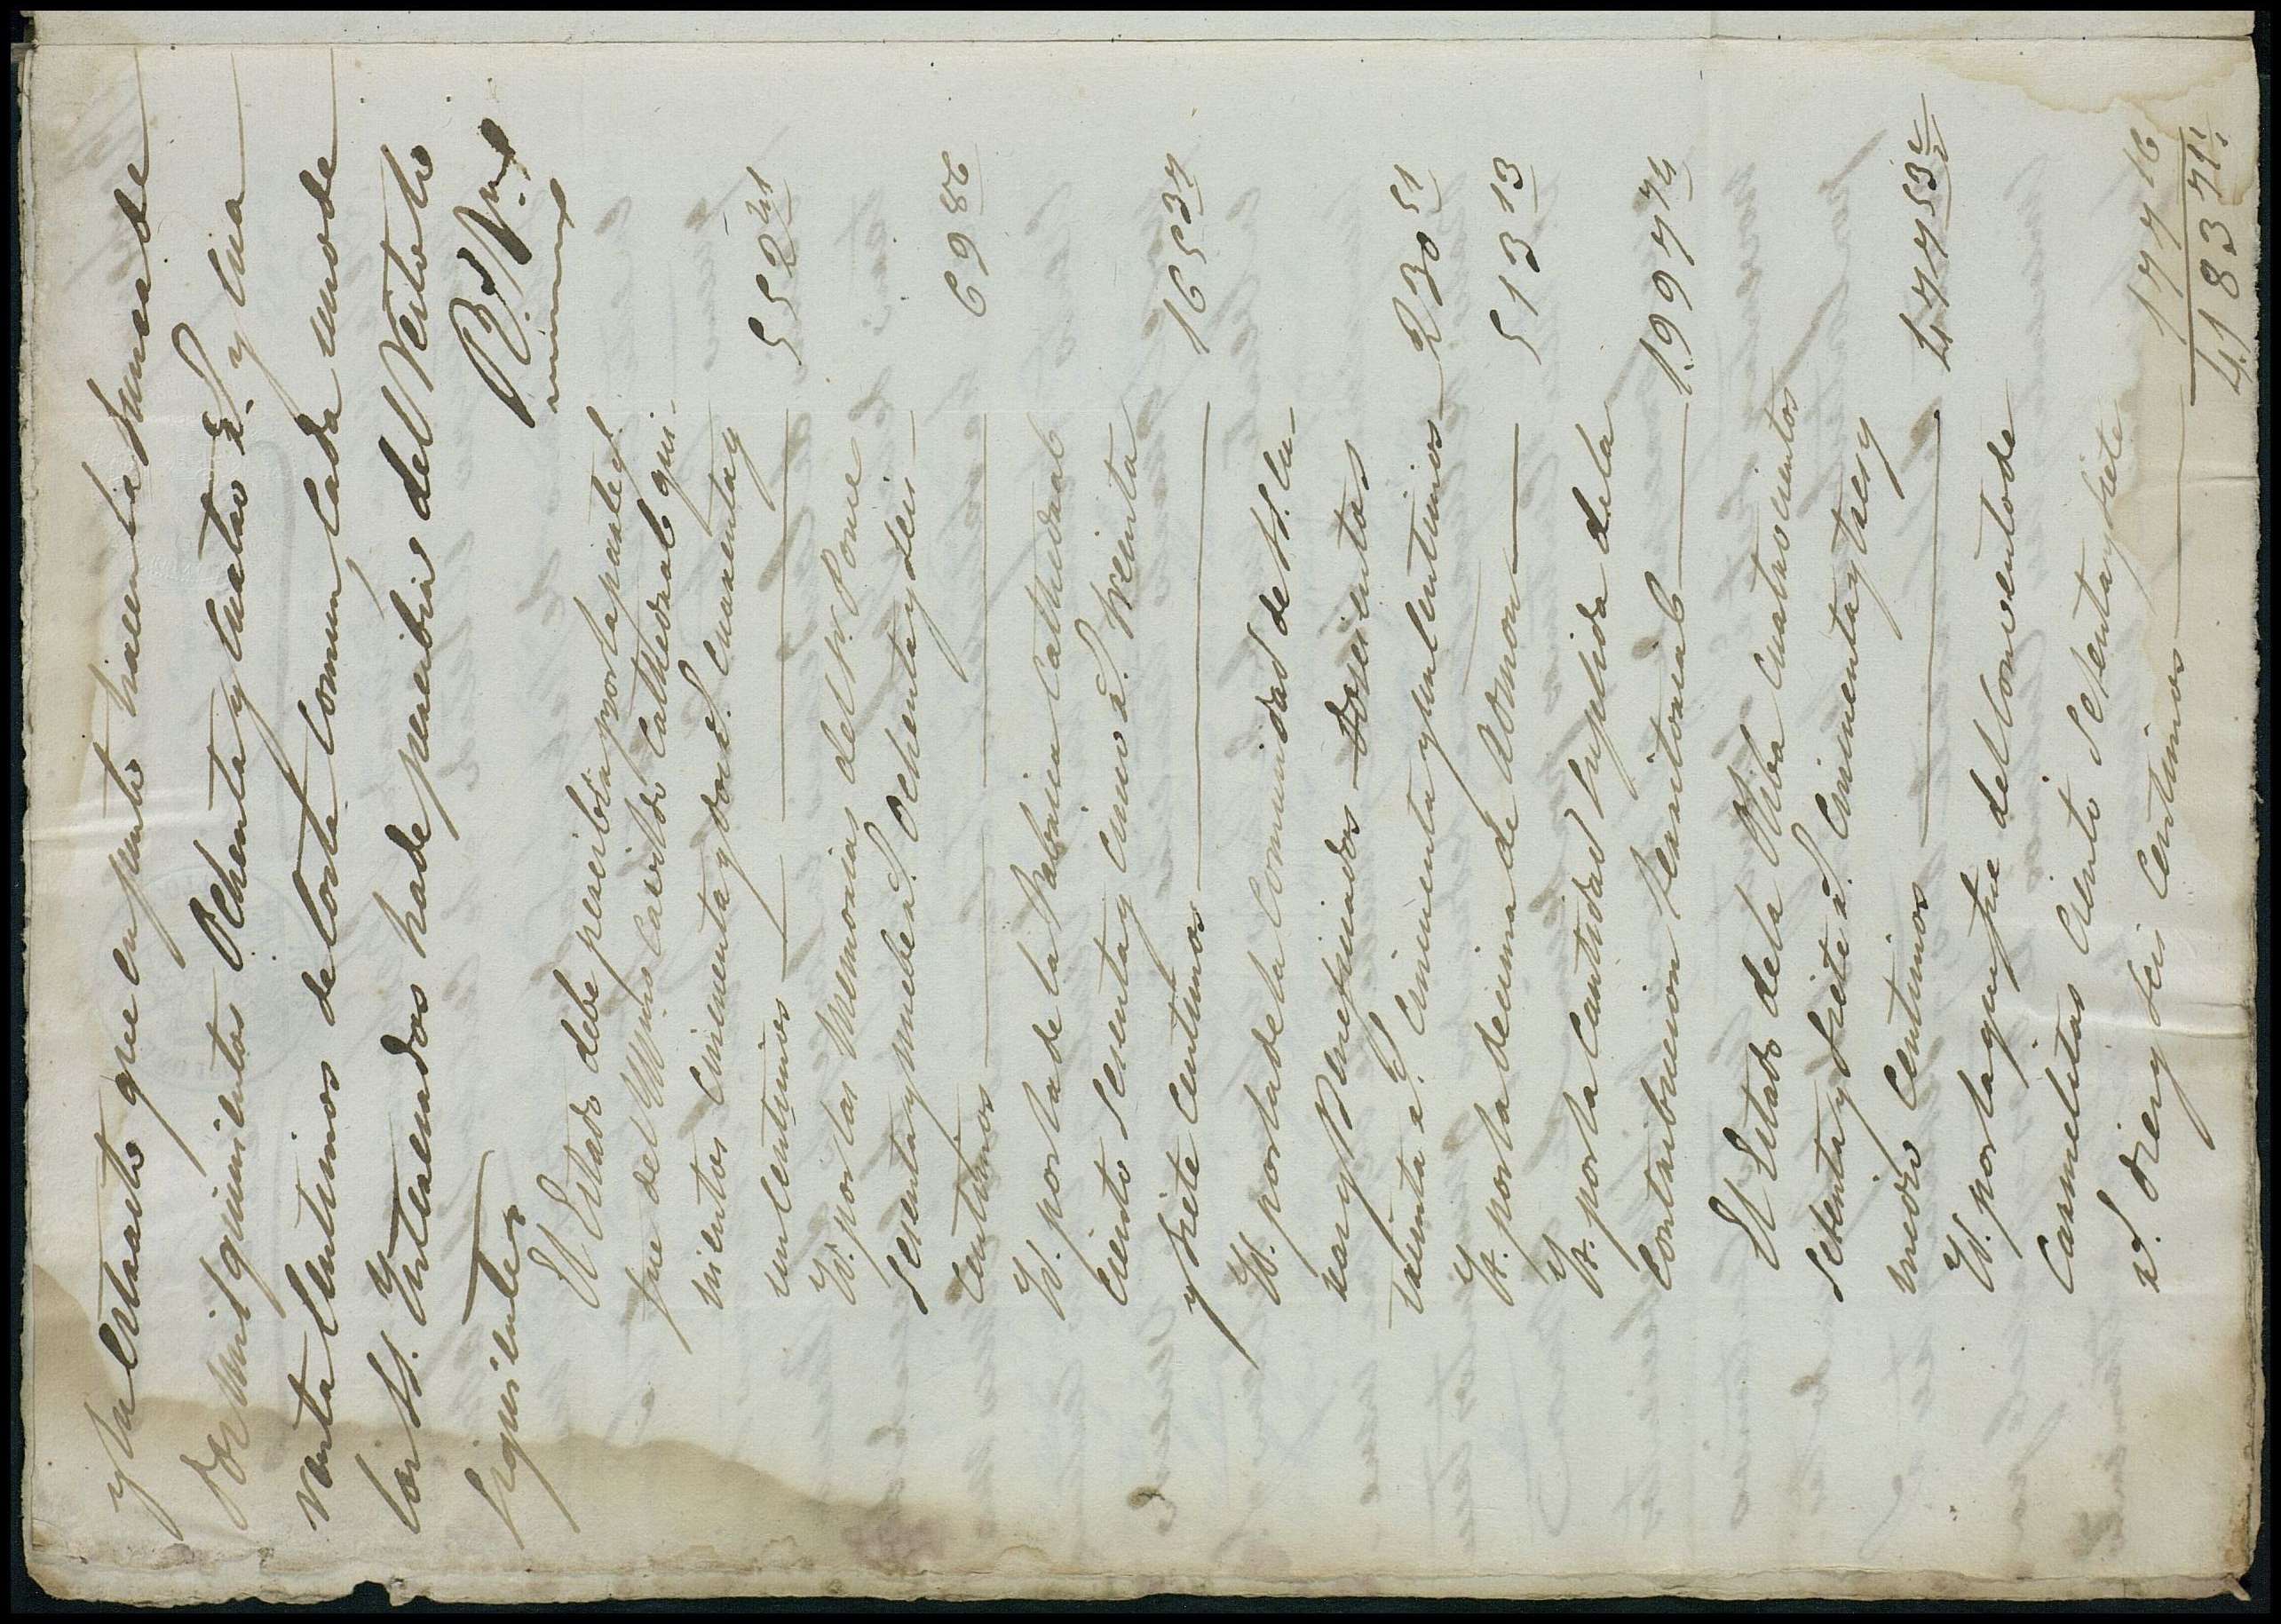 y su extracto que en junto hacen la suma de
dos mil quinientos Ochenta y cuatro r.s y cua
renta Centimos de Corte Comun, Cada uno de
los SS. Interesados ha de percibir del Neto lo
siguiente R.s Vn.
El Estado debe percibir por la parte q.e
fue del Ylmo Cavildo Cathedral qui-
nientos cincuenta y dos r.s Cuarenta y
un centimos 552 41
Yd. por las Memorias del P. Ponce
Sesenta y nuebe r.s Ochenta y seis
Centimos 69 86
Yd. por la de la Fabrica Cathedral
Ciento Sesenta y Cinco r.s treinta
y siete Centimos 165 37
Yd. por la de la Comunidad de SS. Cu-
ras y Beneficiados Doscientos
treinta r.s Cincuenta y un Centimos 230 51
Yd. por la decima de Administracion 513 13
Yd. por la Cantidad Suplida de la
Contribucion Territorial 1.997 74
El Estado de la Oliba Cuatrocientos
Setenta y siete r.s Cincuenta y tres y
medio Centimos 477 53 ½
Yd. por la que fue del Convento de
Carmelitas Ciento Setenta y siete
r.s diez y seis Centimos 177 16
4.183 71 ½